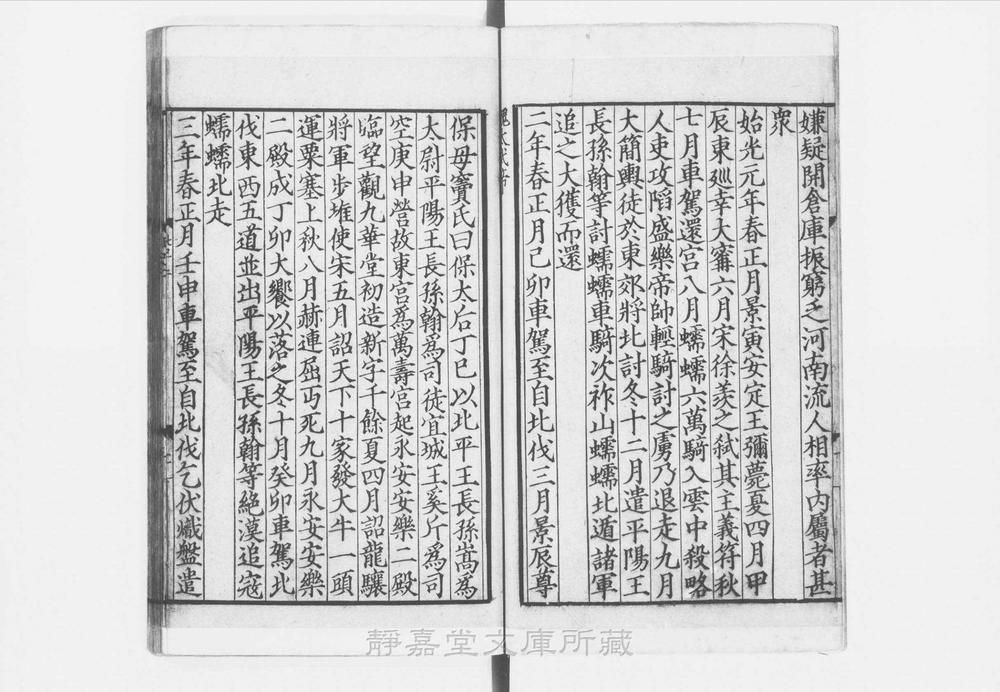 嫌疑開倉庫振窮乏河南流人相率内屬者甚
衆
始光元年春正月景寅安定王彌薨夏四月甲
辰東廵幸大甯六月宋徐羨之弑其主義符秋
七月車駕還宮八月蠕蠕六萬騎入雲中殺略
人吏攻䧟盛樂帝帥輕騎討之虜乃退走九月
大簡輿徒於東郊將北討冬十二月遣平陽王
長孫翰等討蠕蠕車騎次祚山蠕蠕北遁諸軍
追之大獲而還
二年春正月己卯車駕至自北伐三月景辰尊
保母竇氏曰保太后丁巳以北平王長孫嵩爲
太尉平陽王長孫翰爲司徒宜城王奚斤爲司
空庚申營故東宮爲萬壽宮起永安安樂二殿
臨望觀九華堂初造新字千餘夏四月詔龍驤
將軍步堆使宋五月詔天下十家發大牛一頭
運粟塞上秋八月赫連屈丐死九月永安安樂
二殿成丁卯大饗以落之冬十月癸卯車駕北
伐東西五道並出平陽王長孫翰等絕漠追寇
蠕蠕北走
三年春正月壬申車駕至自北伐乞伏熾盤遣
靜嘉堂文庫所藏